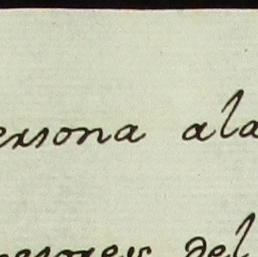 ersona ala
del